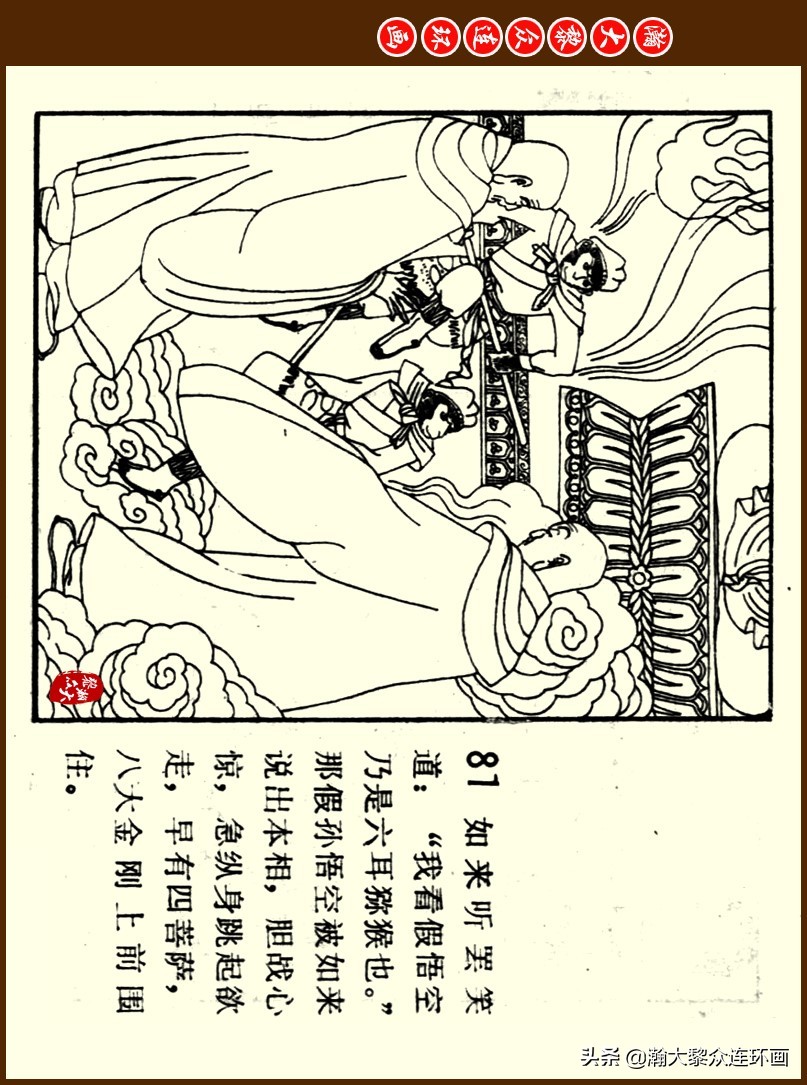 瀚大黎众连环画
81 如来听罢笑
道：“我看假悟空
乃是六耳猕猴也。”
那假孙悟空被如来
说出本相，胆战心
惊，急纵身跳起欲
走，早有四菩萨，
八大金刚上前围
住。
头条 @瀚大黎众连环画